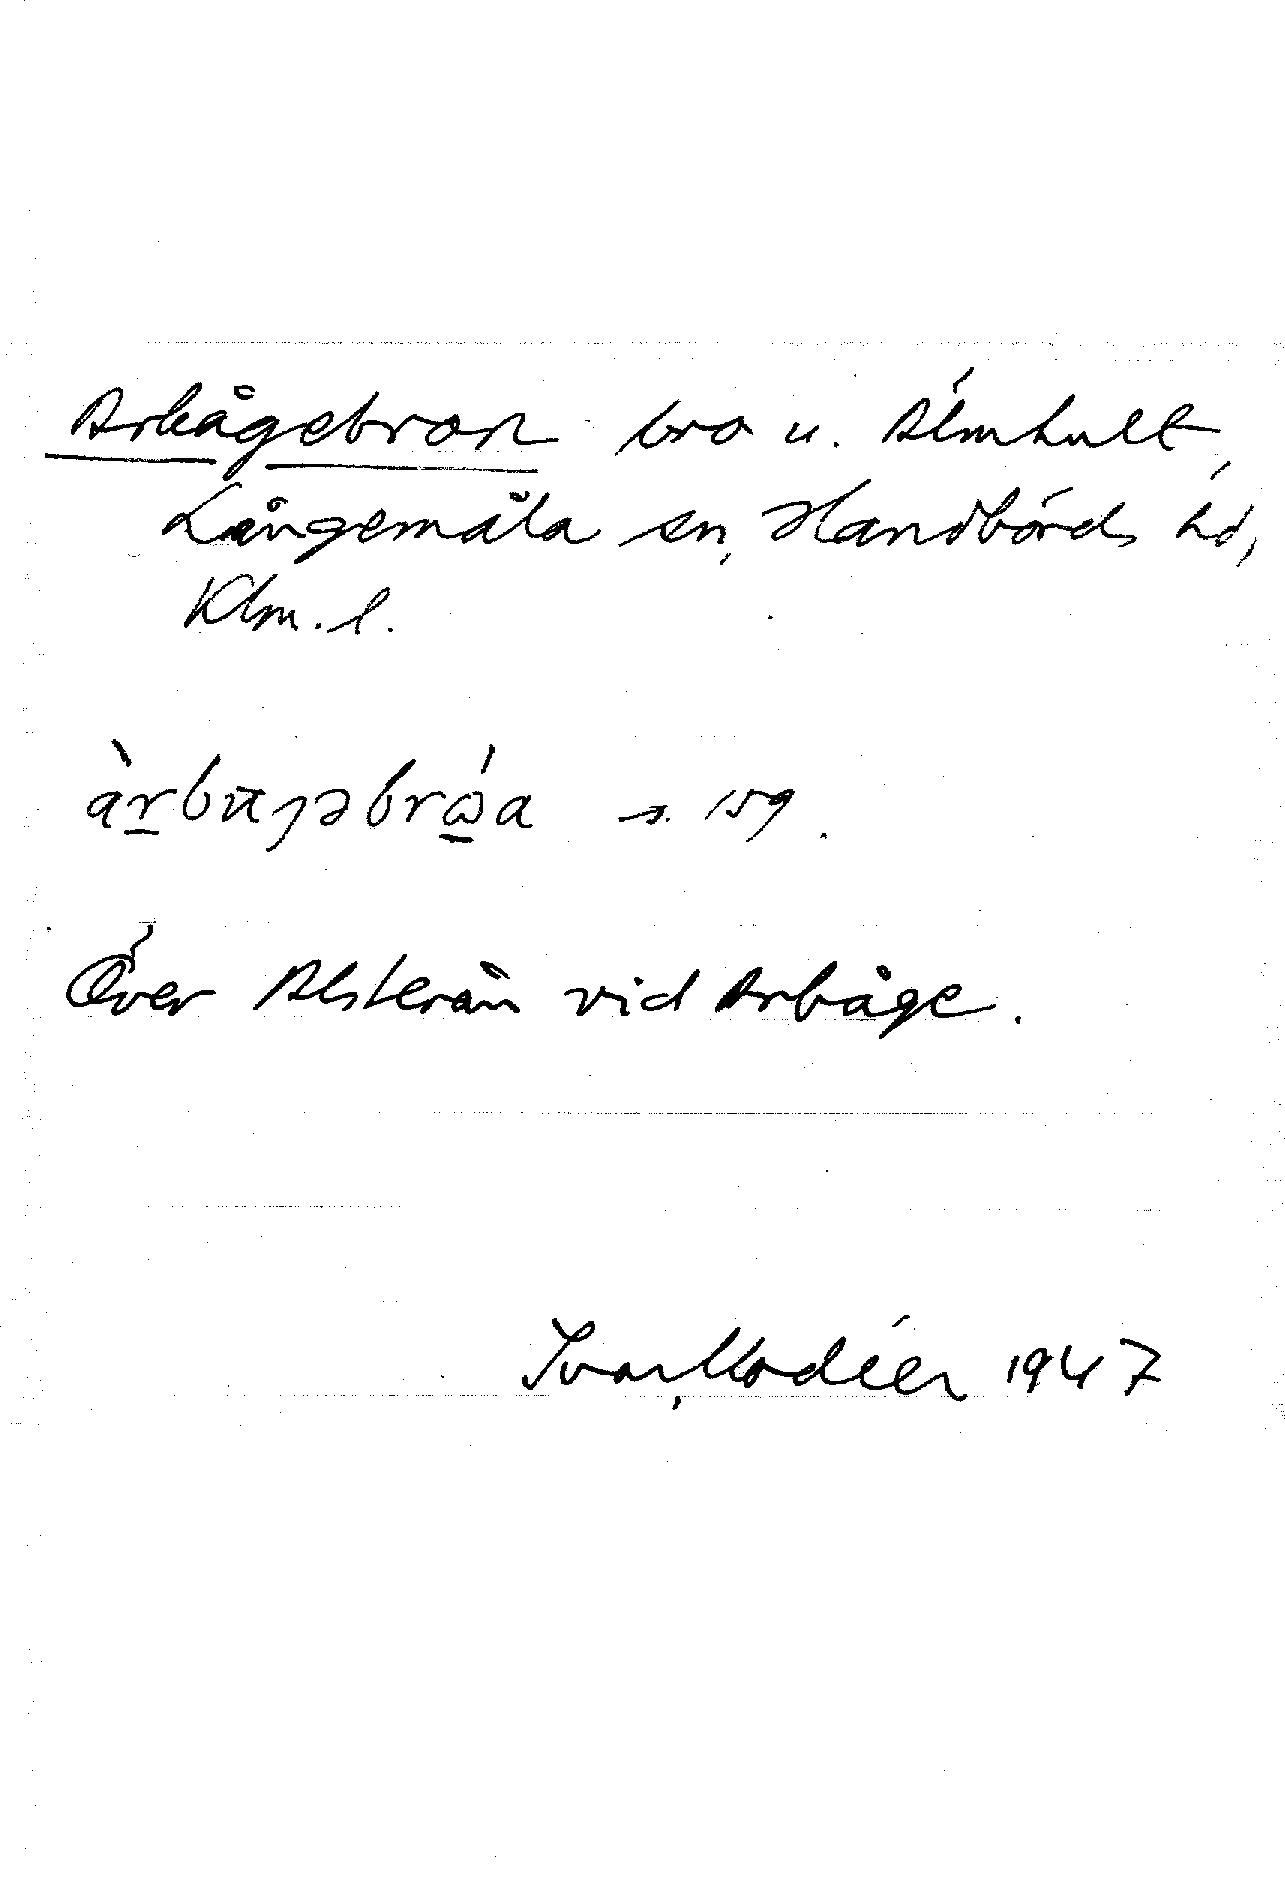 Arbågebron bro u. Älmhult,
Långemåla sn, Handbörds hd,
Klm. l.
s. 159.
Över Alsterån vid Arbåge.
Ivar Modéer 1947